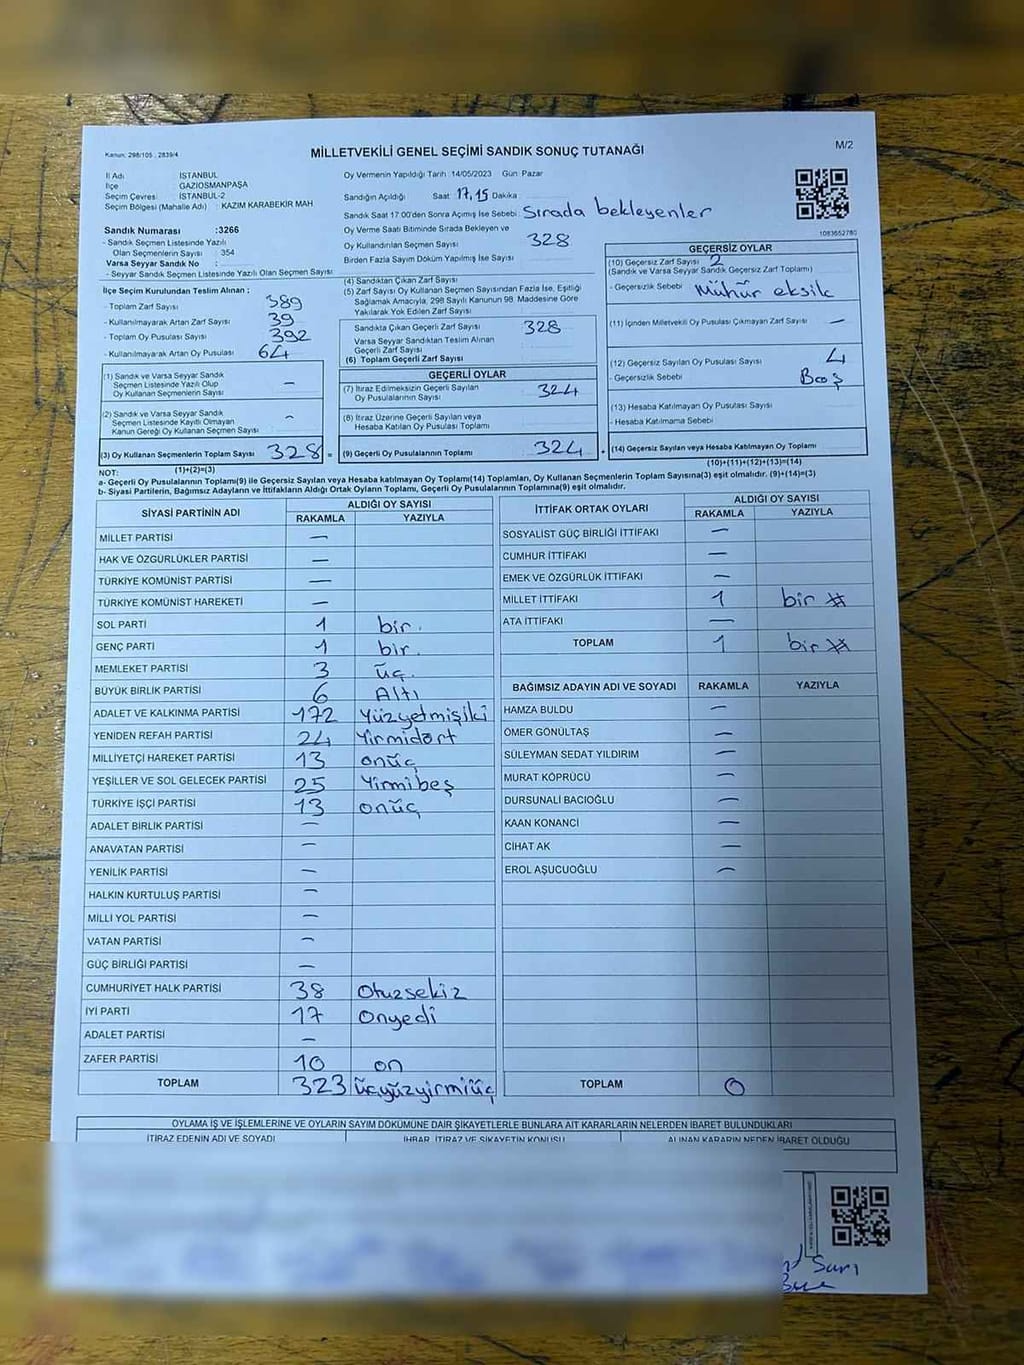 Kanun: 298/105 , 2839/4
MİLLETVEKİLİ GENEL SEÇİMİ SANDIK SONUÇ TUTANAĞI
M/2
İl Adı İSTANBUL
İlçe GAZİOSMANPAŞA
Seçim Çevresi İSTANBUL-2
Seçim Bölgesi (Mahalle Adı) : KAZIM KARABEKİR MAH
Sandık Numarası :3266
- Sandık Seçmen Listesinde Yazılı
Olan Seçmenlerin Sayısı : 354
Varsa Seyyar Sandık No :
- Seyyar Sandık Seçmen Listesinde Yazılı Olan Seçmen Sayısı
Oy Vermenin Yapıldığı Tarih : 14/05/2023 Gün: Pazar
Sandığın Açıldığı Saat 17,15 Dakika
Sandık Saat 17:00'den Sonra Açılmış İse Sebebi : Sırada bekleyenler
Oy Verme Saati Bitiminde Sırada Bekleyen ve
Oy Kullandırılan Seçmen Sayısı 328
Birden Fazla Sayım Döküm Yapılmış İse Sayısı
1083652780
İlçe Seçim Kurulundan Teslim Alınan :
- Toplam Zarf Sayısı 389
- Kullanılmayarak Artan Zarf Sayısı 39
- Toplam Oy Pusulası Sayısı 392
- Kullanılmayarak Artan Oy Pusulası 64
(1) Sandık ve Varsa Seyyar Sandık
Seçmen Listesinde Yazılı Olup
Oy Kullanan Seçmenlerin Sayısı –
(2) Sandık ve Varsa Seyyar Sandık
Seçmen Listesinde Kayıtlı Olmayan
Kanun Gereği Oy Kullanan Seçmen Sayısı –
(3) Oy Kullanan Seçmenlerin Toplam Sayısı 328
(1)+(2)=(3)
(4) Sandıktan Çıkan Zarf Sayısı
(5) Zarf Sayısı Oy Kullanan Seçmen Sayısından Fazla İse, Eşitliği
Sağlamak Amacıyla, 298 Sayılı Kanunun 98. Maddesine Göre
Yakılarak Yok Edilen Zarf Sayısı
Sandıkta Çıkan Geçerli Zarf Sayısı 328
Varsa Seyyar Sandıktan Teslim Alınan
Geçerli Zarf Sayısı
(6) Toplam Geçerli Zarf Sayısı
GEÇERLİ OYLAR
(7) İtiraz Edilmeksizin Geçerli Sayılan
Oy Pusulalarının Sayısı 324
(8) İtiraz Üzerine Geçerli Sayılan veya
Hesaba Katılan Oy Pusulası Toplamı
= (9) Geçerli Oy Pusulalarının Toplamı 324
GEÇERSİZ OYLAR
(10) Geçersiz Zarf Sayısı 2
(Sandık ve Varsa Seyyar Sandık Geçersiz Zarf Toplamı)
- Geçersizlik Sebebi Mühür eksik
(11) İçinden Milletvekili Oy Pusulası Çıkmayan Zarf Sayısı –
(12) Geçersiz Sayılan Oy Pusulası Sayısı 4
- Geçersizlik Sebebi Boş
(13) Hesaba Katılmayan Oy Pusulası Sayısı
- Hesaba Katılmama Sebebi
+ (14) Geçersiz Sayılan veya Hesaba Katılmayan Oy Toplamı
(10)+(11)+(12)+(13)=(14)
NOT:
a- Geçerli Oy Pusulalarının Toplamı(9) ile Geçersiz Sayılan veya hesaba katılmayan Oy Toplamı(14) Toplamları, Oy Kullanan Seçmenlerin Toplam Sayısına(3) eşit olmalıdır. (9)+(14)=(3)
b- Siyasi Partilerin, Bağımsız Adayların ve İttifakların Aldığı Ortak Oyların Toplamı, Geçerli Oy Pusulalarının Toplamına(9) eşit olmalıdır.
SİYASİ PARTİNİN ADI ALDIĞI OY SAYISI
RAKAMLA YAZIYLA
MİLLET PARTİSİ –
HAK VE ÖZGÜRLÜKLER PARTİSİ –
TÜRKİYE KOMÜNİST PARTİSİ –
TÜRKİYE KOMÜNİST HAREKETİ –
SOL PARTİ 1 bir.
GENÇ PARTİ 1 bir.
MEMLEKET PARTİSİ 3 üç.
BÜYÜK BİRLİK PARTİSİ 6 Altı
ADALET VE KALKINMA PARTİSİ 172 Yüzyetmişiki
YENİDEN REFAH PARTİSİ 24 Yirmidört
MİLLİYETÇİ HAREKET PARTİSİ 13 onüç
YEŞİLLER VE SOL GELECEK PARTİSİ 25 Yirmibeş
TÜRKİYE İŞÇİ PARTİSİ 13 onüç
ADALET BİRLİK PARTİSİ –
ANAVATAN PARTİSİ –
YENİLİK PARTİSİ –
HALKIN KURTULUŞ PARTİSİ –
MİLLİ YOL PARTİSİ –
VATAN PARTİSİ –
GÜÇ BİRLİĞİ PARTİSİ –
CUMHURİYET HALK PARTİSİ 38 Otuzsekiz
İYİ PARTİ 17 Onyedi
ADALET PARTİSİ –
ZAFER PARTİSİ 10 on
TOPLAM 323 üçyüzyirmiüç
İTTİFAK ORTAK OYLARI ALDIĞI OY SAYISI
RAKAMLA YAZIYLA
SOSYALİST GÜÇ BİRLİĞİ İTTİFAKI –
CUMHUR İTTİFAKI –
EMEK VE ÖZGÜRLÜK İTTİFAKI –
MİLLET İTTİFAKI 1 bir #
ATA İTTİFAKI –
TOPLAM 1 bir #
BAĞIMSIZ ADAYIN ADI VE SOYADI RAKAMLA YAZIYLA
HAMZA BULDU –
ÖMER GÖNÜLTAŞ –
SÜLEYMAN SEDAT YILDIRIM –
MURAT KÖPRÜCÜ –
DURSUNALİ BACIOĞLU –
KAAN KONANCI –
CİHAT AK –
EROL AŞUCUOĞLU –
TOPLAM 0
OYLAMA İŞ VE İŞLEMLERİNE VE OYLARIN SAYIM DÖKÜMÜNE DAİR ŞİKAYETLERLE BUNLARA AİT KARARLARIN NELERDEN İBARET BULUNDUKLARI
İTİRAZ EDENİN ADI VE SOYADI İHBAR, İTİRAZ VE ŞİKAYETİN KONUSU ALINAN KARARIN NEDEN İBARET OLDUĞU
Sarı